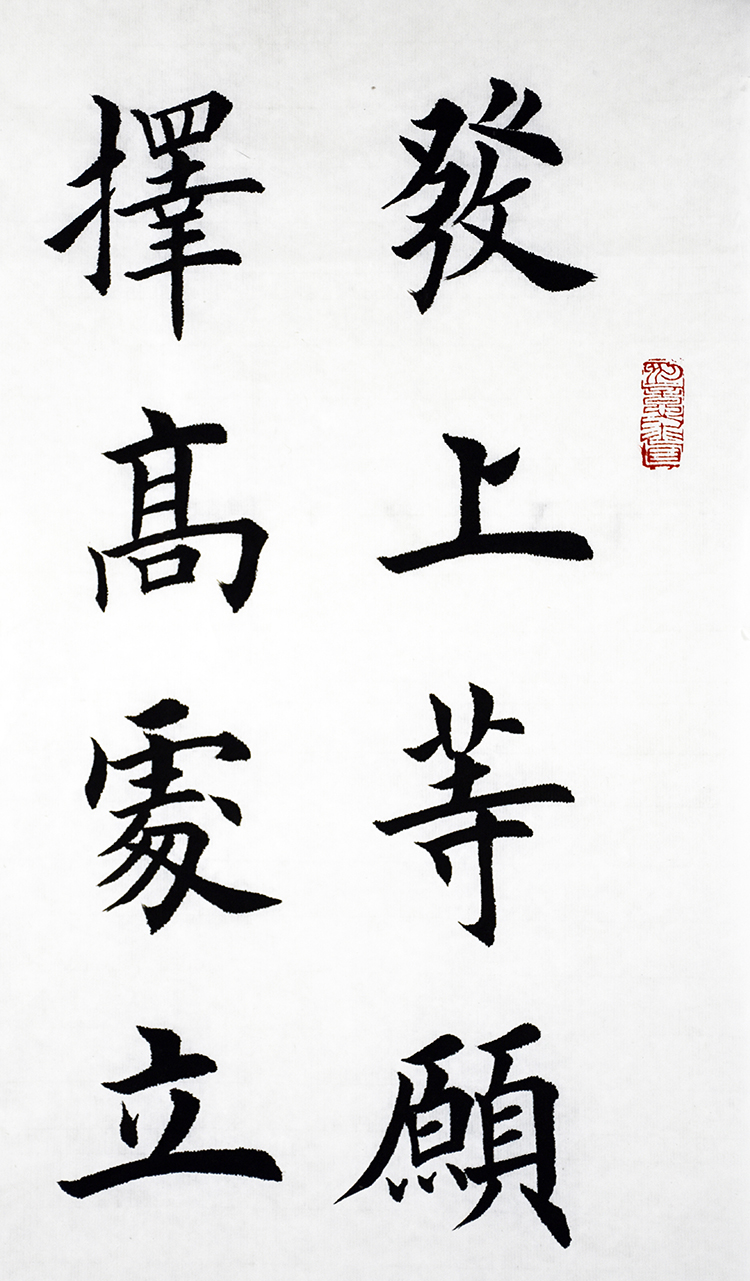 發上等願
擇髙處立